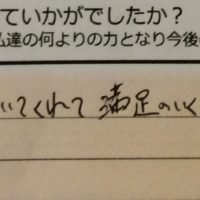 ていかがでしたか?
私達の何よりの力となり今後
いてくれて 満足のいく